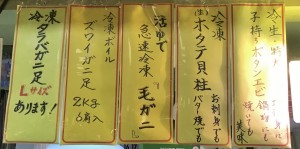 冷生
子持ちボタンエビ
お刺身でも
焼いても
美味
冷凍
ホタテ貝柱
お刺身でも
バターでも
活ゆで
急速冷凍
毛ガニ
冷凍ボイル
ズワイガニ足
2Kg
6肩入
冷凍
タラバガニ足
Lサイズ
あります!